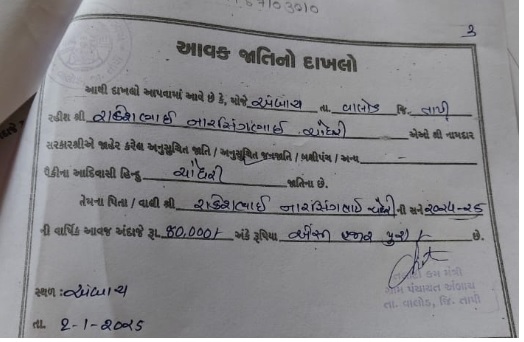 6703010
3
આવક જાતિનો દાખલો
આથી દાખલો આપવામાં આવે છે કે, મોજે અંબાચ તા. વાલોડ જિ. તાપી
રહીશ શ્રી રાકેશભાઈ નારસિંગભાઈ ચૌધરી એઓ શ્રી નામદાર
સરકારશ્રીએ જાહેર કરેલ અનુસુચિત જાતિ / અનુસુચિત જનજાતિ / બક્ષીપંચ / અન્ય -
પૈકીના આદિવાસી હિન્દુ ચૌધરી જાતિના છે.
તેમના પિતા / વાલી શ્રી રાકેશભાઈ નારસિંગભાઈ ચૌધરી ની સને ૨૦૨૪-૨૫
ની વાર્ષિક આવક અંદાજે રૂા. ૮૦,૦૦૦/- અંકે રૂપિયા એંસી હજાર પુરા /- છે.
તલાટી કમ મંત્રી
ગ્રામ પંચાયત અંબાચ
તા. વાલોડ, જિ. તાપી
સ્થળ : અંબાચ
તા. ૨-૧-૨૦૨૫